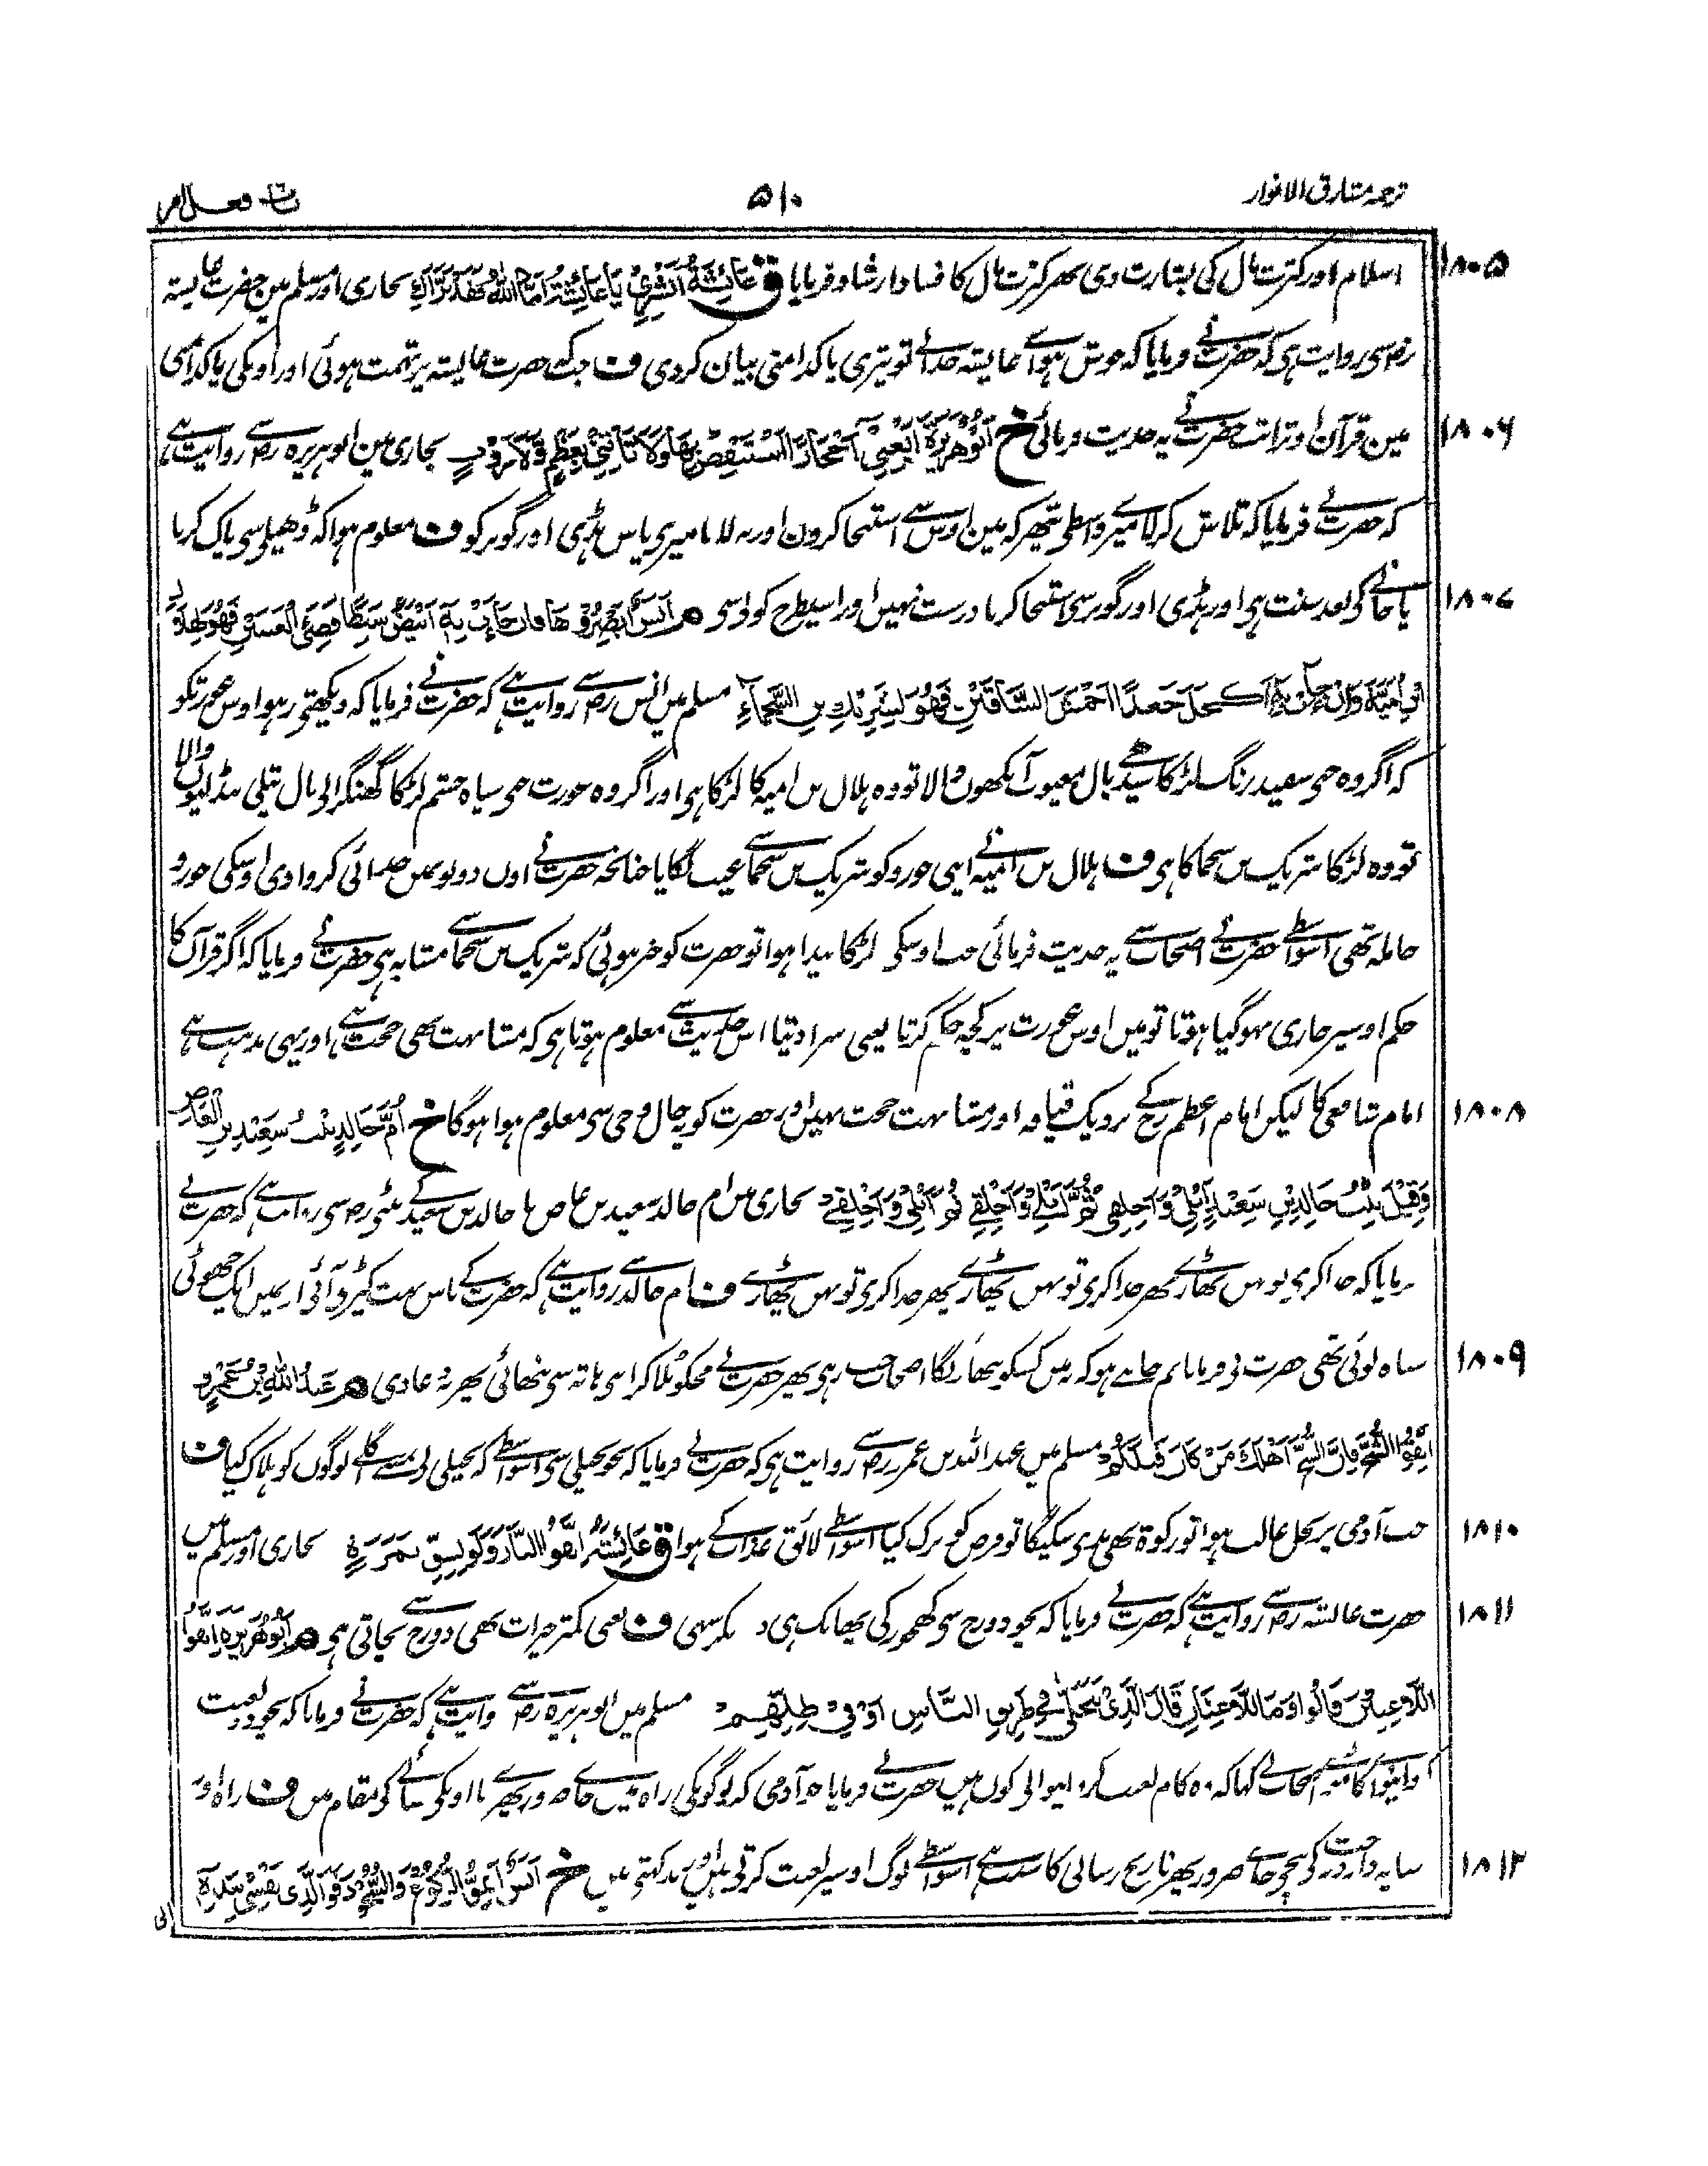 ترجمہ مشارق الانوار
۵۱۰
باب فعل امر
۱۸۰۵
اسلام اور کثرت مال کی بشارت دی پھر کثرت مال کا فساد ارشاد فرمایا ق عَائِشَةُ اَبْشِرِیْ یَا عَائِشَةُ اَمَّا اللّٰهُ فَقَدْ بَرَّاَكِ بخاری اور مسلم مین حضرت عایشہ
رض سی روایت ہی کہ حضرت نے فرمایا کہ خوش ہو اے عایشہ خدا نے تو تیری پاکدامنی بیان کر دی ف جب کہ حضرت عایشہ پر تہمت ہوئی اور اونکی پاکدامنی
۱۸۰۶
مین قرآن اوترا تب حضرت نے یہ حدیث فرمائی خ اَبُوْ هُرَيْرَةَ اِبْغِنِيْ اَحْجَارًا اَسْتَنْفِضْ بِهَا وَلَا تَاْتِنِيْ بِعَظْمٍ وَّلَا رَوْثٍ بخاری مین ابوہریرہ رض سے روایت ہے
کہ حضرت نے فرمایا کہ تلاش کر لا میرے واسطی پتھر کہ مین اوس سے استنجا کرون اور نہ لانا میری پاس ہڈی اور گوبر کو ف معلوم ہوا کہ ڈھیلی سی پاک کرنا
۱۸۰۷
پاخانے کی بعد سنت ہی اور ہڈی اور گوبر سی استنجا کرنا درست نہین اور اسیطرح کوئلہ سی م اَنَسٌ اَبْصِرُوْهَا فَاِنْ جَاءَتْ بِهٖ اَبْيَضَ سَبِطًا قَضِيَّ الْعَيْنَيْنِ فَهُوَ لِهِلَالِ بْنِ
اُمَيَّةَ وَاِنْ جَاءَتْ بِهٖ اَكْحَلَ جَعْدًا اَحْمَشَ السَّاقَيْنِ فَهُوَ لِشَرِيْكِ بْنِ السَّحْمَاءِ مسلم مین انس رض سے روایت ہے کہ حضرت نے فرمایا کہ دیکھتی رہو اوس عورتکو
کہ اگر وہ جنی سفید رنگ لڑکا سیدھے بال معیوب آنکھون والا تو وہ ہلال بن امیہ کا لڑکا ہی اور اگر وہ عورت جنی سیاہ چشم لڑکا گھنگرالی بال پتلی پنڈلیون والا
تو وہ لڑکا شریک بن سحما کا ہی ف ہلال بن امیہ نے اپنی جورو کو شریک بن سحما سے عیب لگایا چنانچہ حضرت نے اون دونو مین جدائی کروا دی اوسکی جورو
حاملہ تھی اسواسطے حضرت نے اصحاب سے یہ حدیث فرمائی جب اوسکی لڑکا پیدا ہوا تو حضرت کو خبر ہوئی کہ شریک بن سحما سے مشابہ ہی حضرت نے فرمایا کہ اگر قرآن کا
حکم اوسپر جاری نہو گیا ہوتا تو مین اوس عورت پر کچھ حکم کرتا یعنی سزا دیتا اس حدیث سے معلوم ہوتا ہی کہ مشابہت بھی حجت ہے اور یہی مذہب ہے
۱۸۰۸
امام شافعی کا لیکن امام اعظم رح کے نزدیک قیافہ اور مشابہت حجت نہین اور حضرت کو یہ حال وحی سی معلوم ہوا ہوگا خ اُمُّ خَالِدٍ بِنْتُ سَعِيْدِ بْنِ الْعَاصِ
وَقِيْلَ بِنْتُ خَالِدِ بْنِ سَعِيْدٍ اَبْلِيْ وَاَخْلِقِيْ ثُمَّ اَبْلِيْ وَاَخْلِقِيْ ثُمَّ اَبْلِيْ وَاَخْلِقِيْ بخاری مین ام خالد سعید بن عاص یا خالد بن سعید کے بیٹی رض سی روایت ہے کہ حضرت نے
فرمایا کہ خدا کری تو پہن پھاڑے پھر خدا کری تو پہن پھاڑے پھر خدا کری تو پہن پھاڑے ف ام خالد سے روایت ہے کہ حضرت کے پاس بہت کپڑے آئی اونمین ایک چھوٹی
۱۸۰۹
سیاہ لوئی تھی حضرت نی فرمایا تم جانتے ہو کہ مین کسکو پنھاؤنگا اصحاب چپ رہی پھر حضرت نے مجکو بلا کر اپنی ہاتھ سی پنھائی پھر یہ دعا دی م عَبْدُ اللّٰهِ بْنُ عُمَرَ
اِتَّقُوا الشُّحَّ فَاِنَّ الشُّحَّ اَهْلَكَ مَنْ كَانَ قَبْلَكُمْ مسلم مین عبد اللہ بن عمر رض سے روایت ہی کہ حضرت نے فرمایا کہ بچو بخیلی سی اسواسطے کہ بخیلی نی تمسے اگلے لوگون کو ہلاک کیا ف
۱۸۱۰
جب آدمی پر بخل غالب ہوا تو زکوۃ بھی ندی سکیگا تو فرض کو ترک کیا اسواسطے لائق عذاب کے ہوا ق عَائِشَةُ اِتَّقُوا النَّارَ وَلَوْ بِشِقِّ تَمْرَةٍ بخاری اور مسلم مین
۱۸۱۱
حضرت عائشہ رض سے روایت ہے کہ حضرت نے فرمایا کہ بچو دوزخ سی کھجور کی پھانک ہی دیکر سہی ف یعنی کمتر خیرات بھی دوزخ سے بچاتی ہی م اَبُوْ هُرَيْرَةَ اِتَّقُوا
اللَّاعِنَيْنِ قَالُوْا وَمَا اللَّاعِنَانِ قَالَ الَّذِيْ يَتَخَلّٰى فِيْ طَرِيْقِ النَّاسِ اَوْ فِيْ ظِلِّهِمْ مسلم مین ابو ہریرہ رض سے روایت ہے کہ حضرت نے فرمایا کہ بچو دو لعنت
کروانیوالے کامونسے اصحاب نے کہا کہ وہ کام لعنت کروانیوالی کون ہین حضرت نے فرمایا جو آدمی کہ لوگونکی راہ مین حاجت ضرور پھرے یا اونکی سائے کی مقام مین ف راہ اور
۱۸۱۲
سایہ دار درخت کی نیچے جاے ضرور پھرنا رنج رسانی کا سبب ہے اسواسطے لوگ اوسپر لعنت کرتی ہین اور بد کہتی ہین خ اَنَسٌ اَتِمُّوا الرُّكُوْعَ وَالسُّجُوْدَ فَوَالَّذِيْ نَفْسِيْ بِيَدِهٖ
انی